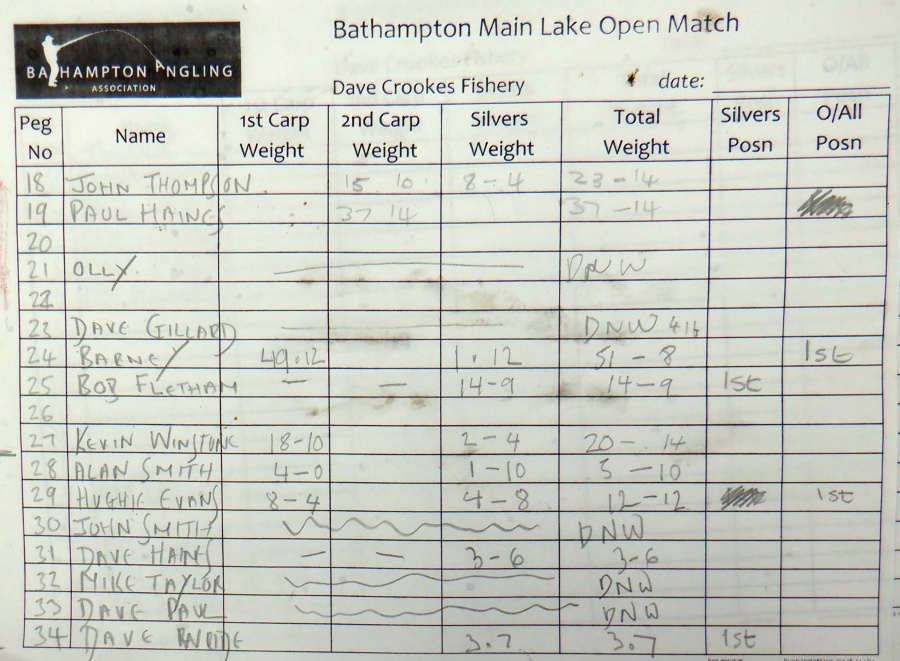 Bathampton Main Lake Open Match
BATHAMPTON ANGLING
ASSOCIATION
Dave Crookes Fishery date:
Peg No Name 1st Carp Weight 2nd Carp Weight Silvers Weight Total Weight Silvers Posn O/All Posn
18 JOHN THOMPSON 15 10 8-4 23-14
19 PAUL HAINES 37 14 37-14
20
21 OLLY DNW
22
23 DAVE GILLARD DNW 4lb
24 BARNEY 49.12 1.12 51-8 1st
25 BOB FLETHAM - - 14-9 14-9 1st
26
27 KEVIN WINSTONE 18-10 2-4 20-14
28 ALAN SMITH 4-0 1-10 5-10
29 HUGHIE EVANS 8-4 4-8 12-12 1st
30 JOHN SMITH DNW
31 DAVE HAINES - - 3-6 3-6
32 MIKE TAYLOR DNW
33 DAVE PAUL DNW
34 DAVE 3.7 3.7 1st